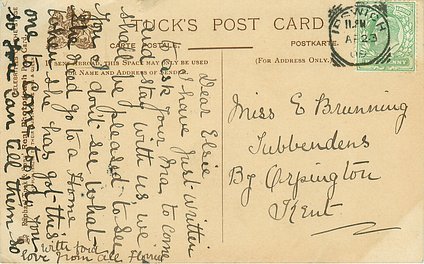 TUCK'S POST CARD
CARTE POSTALE
POSTKARTE.
(For Address Only.)
(For Inland Use Only) this Space may only be used
for Name and Address of Sender.
Dear Elsie
I have just written
to ask your Ma to come
and stay with us, we
should be pleased to see
you, I don't see what
she need go to a Home
when she has got this
one to come to, do you
so you can tell them so
With fond
love from all Florrie
Miss E Brunning
Tubbendens
By Orpington
Kent
11.
AP 23